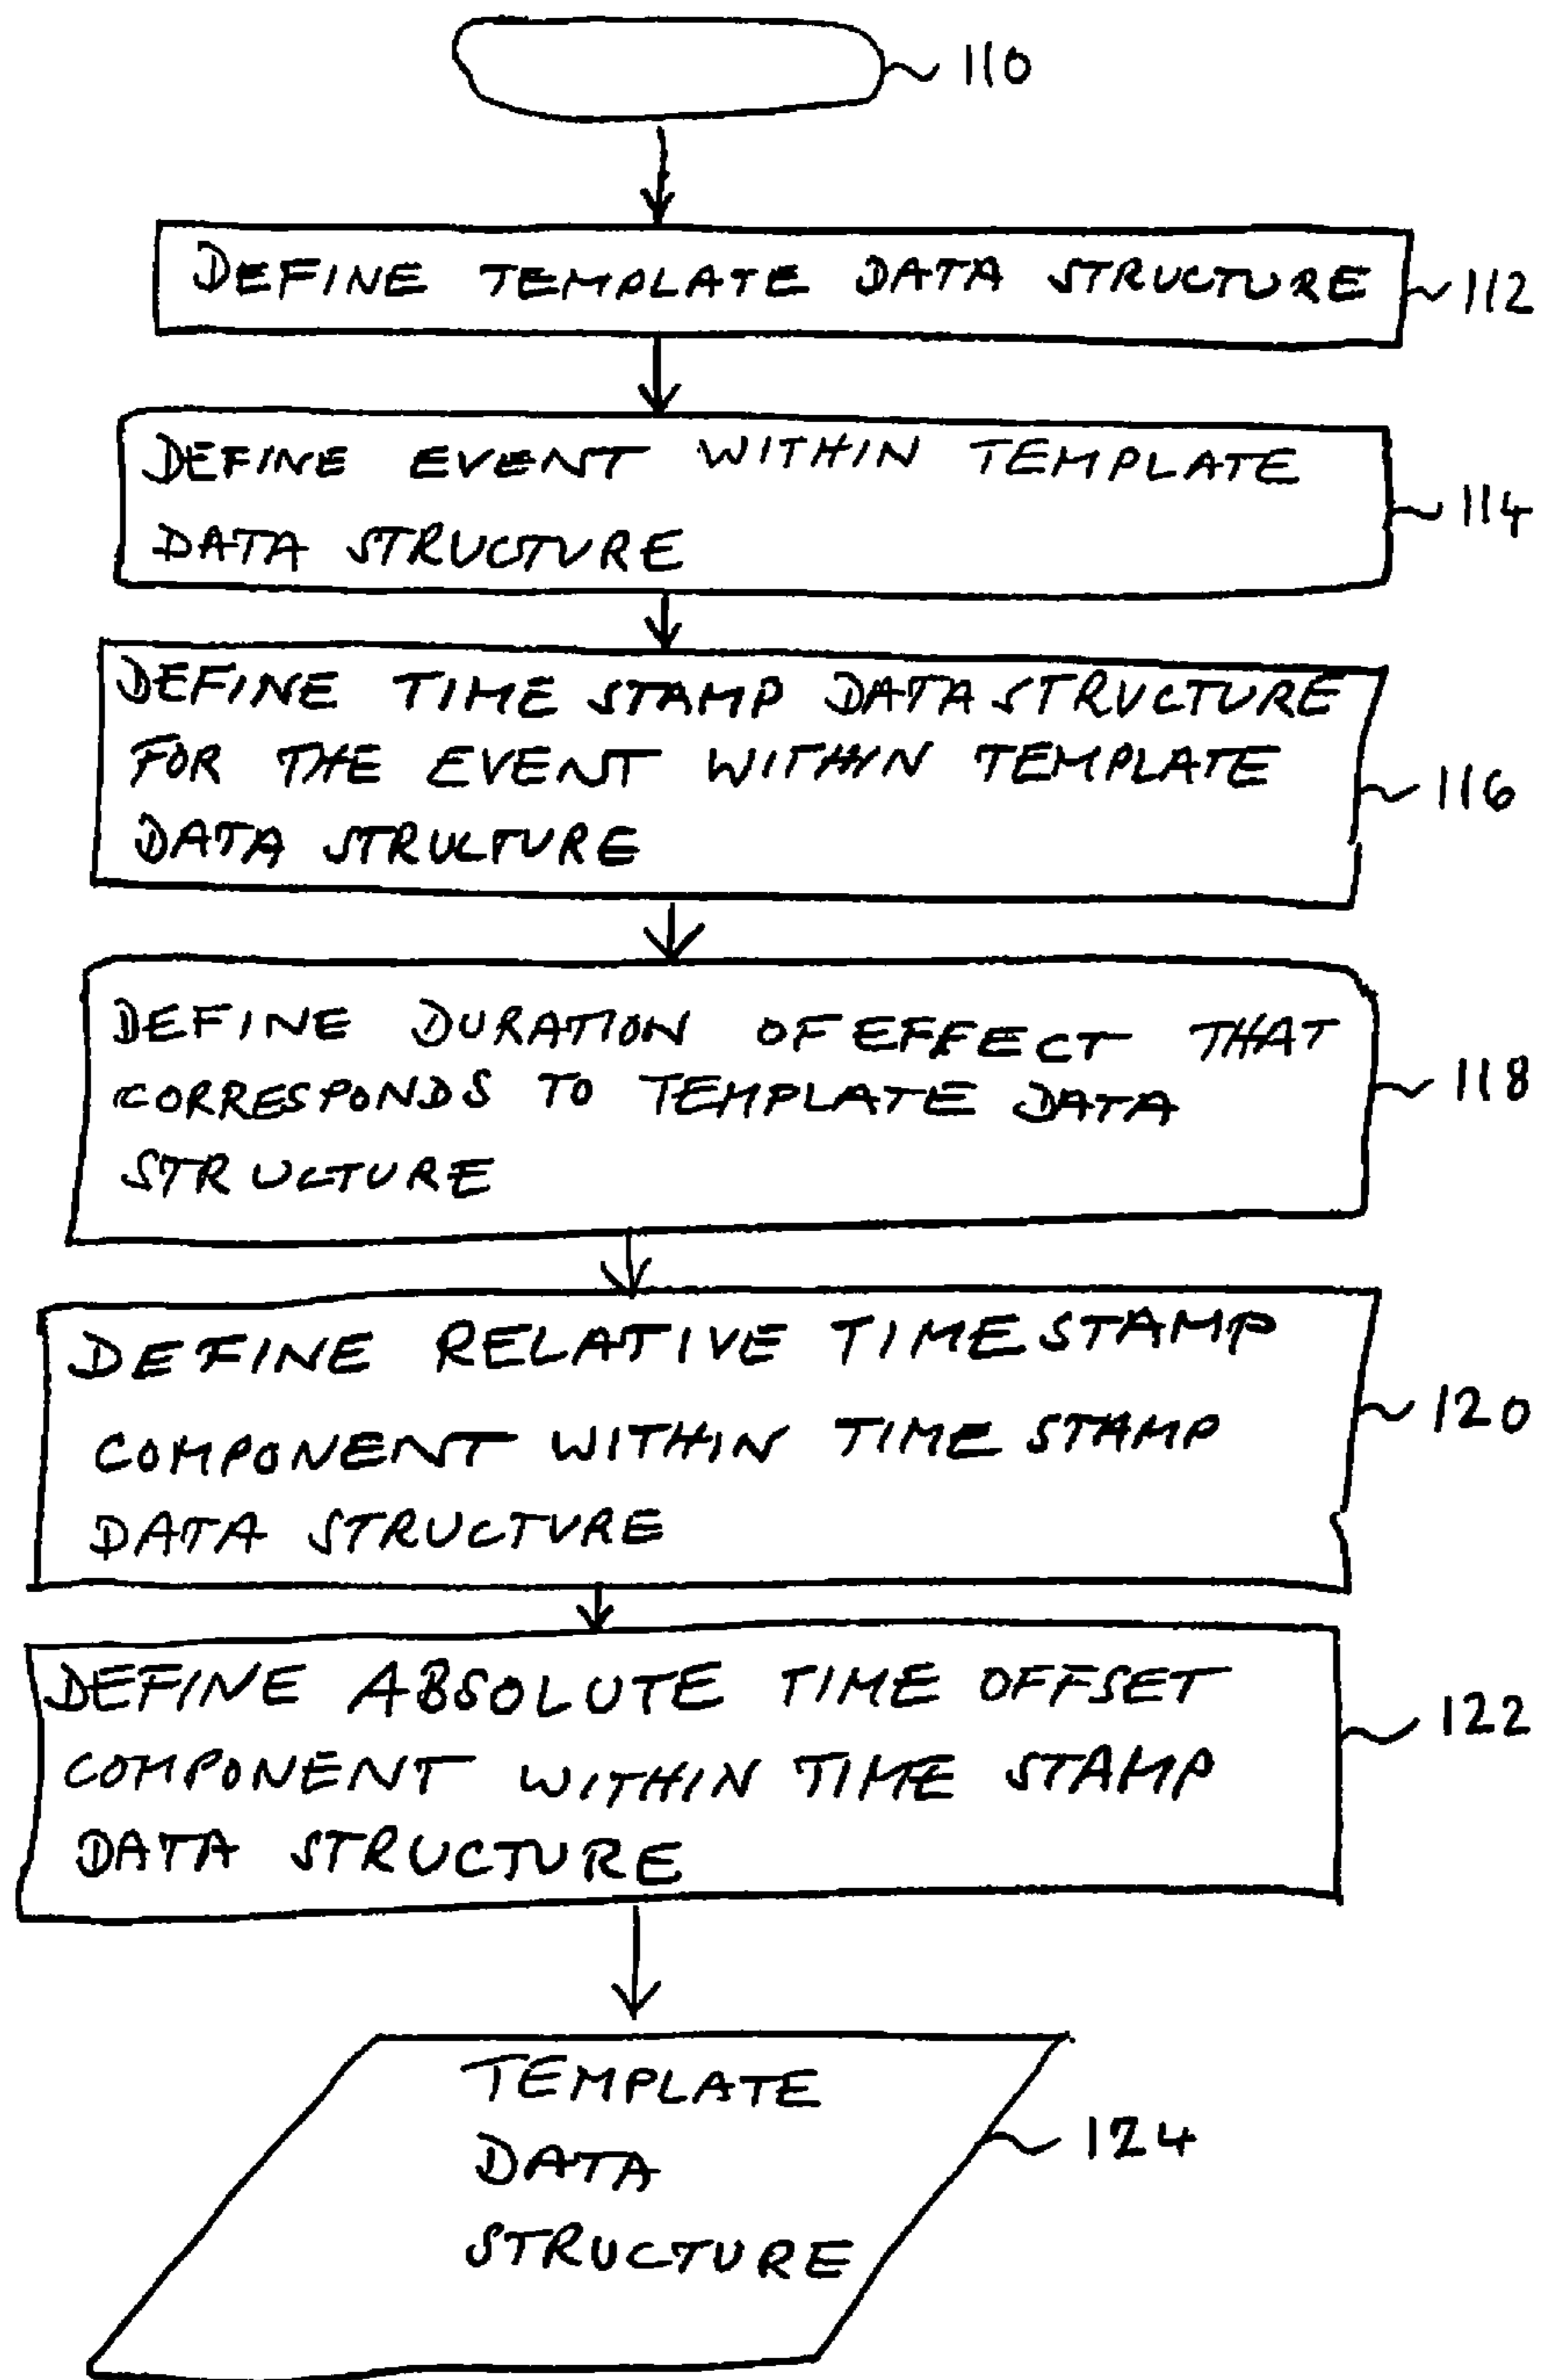 110
DEFINE TEMPLATE DATA STRUCTURE 112
DEFINE EVENT WITHIN TEMPLATE
DATA STRUCTURE
114
DEFINE TIME STAMP DATA STRUCTURE
FOR THE EVENT WITHIN TEMPLATE
DATA STRUCTURE
116
DEFINE DURATION OF EFFECT THAT
CORRESPONDS TO TEMPLATE DATA
STRUCTURE
118
DEFINE RELATIVE TIME STAMP
COMPONENT WITHIN TIME STAMP
DATA STRUCTURE
120
DEFINE ABSOLUTE TIME OFFSET
COMPONENT WITHIN TIME STAMP
DATA STRUCTURE
122
TEMPLATE
DATA
STRUCTURE
124